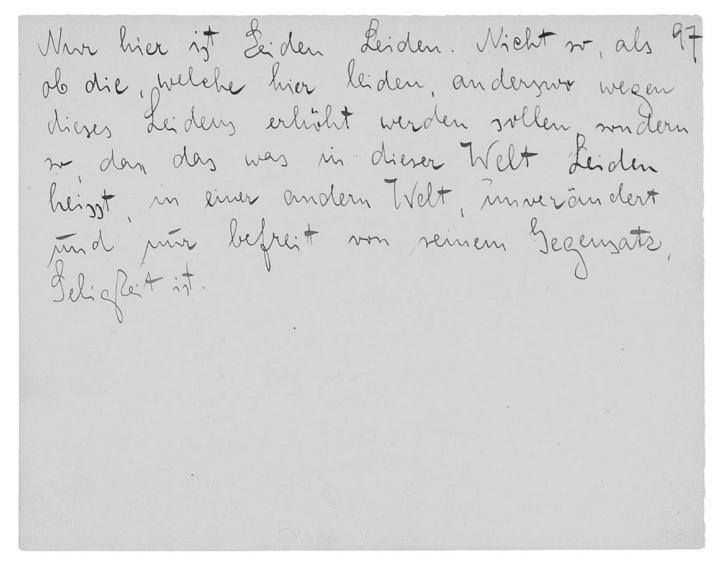 Nur hier ist Leiden Leiden. Nicht so, als 97
ob die, welche hier leiden, anderswo wegen
dieses Leidens erhöht werden sollen, sondern
so, dass das was in dieser Welt Leiden
heisst, in einer andern Welt, unverändert
und nur befreit von seinem Gegensatz,
Seligkeit ist.